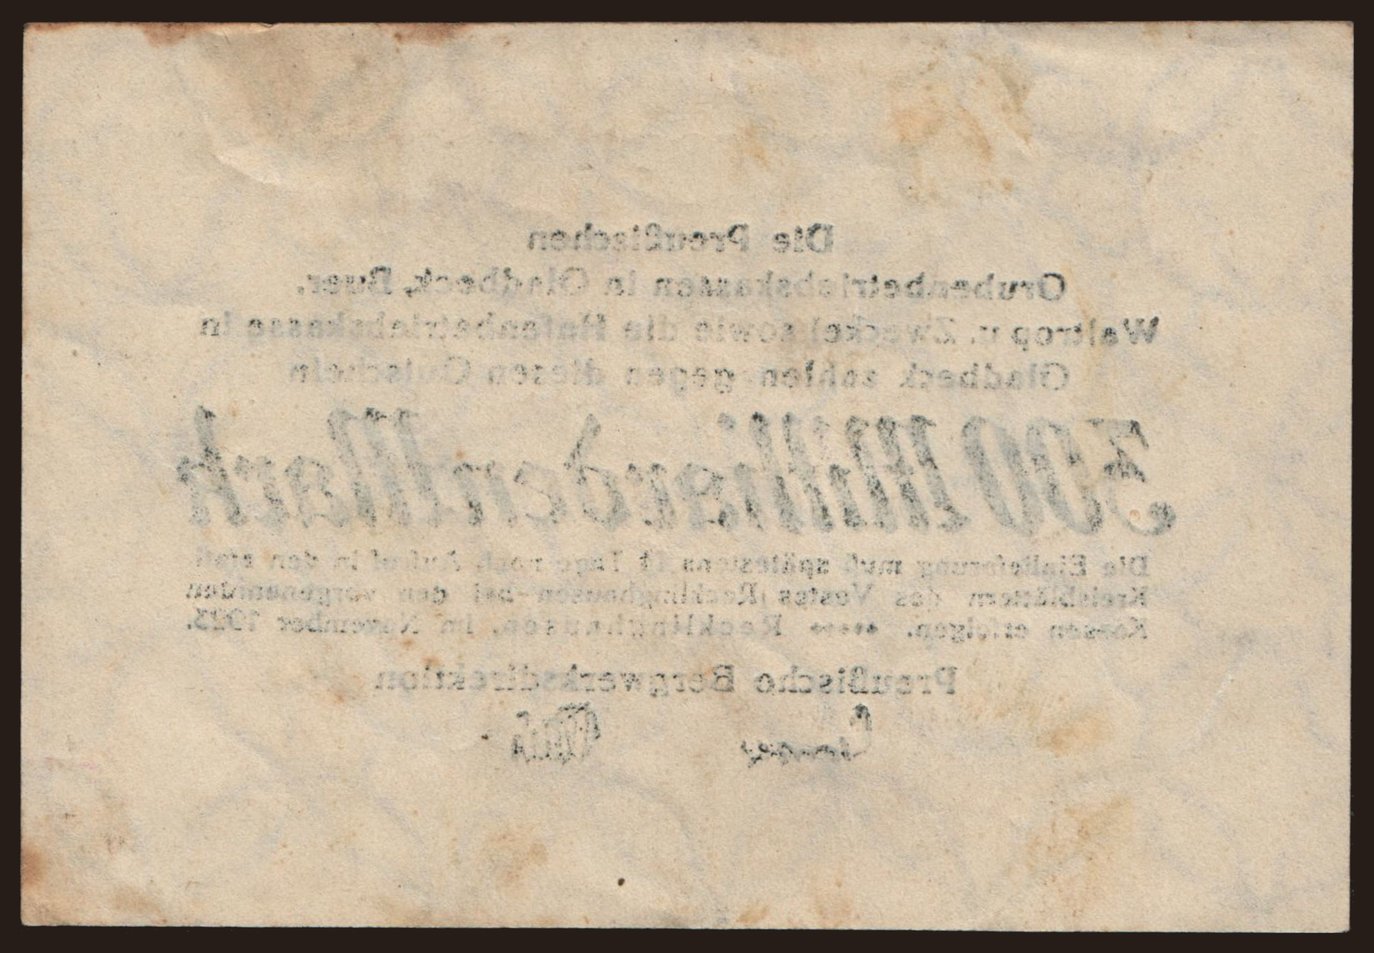 Die Preußischen
Grubenbetriebskassen in Gladbeck, Buer,
Waltrop u. Zweckel sowie die Hafenbetriebskasse in
Gladbeck zahlen gegen diesen Gutschein
500 Milliarden Mark
Die Einlieferung muß spätestens Tage nach Aufruf in den
Kreisblättern des Vestes Recklinghausen bei den vorgenannten
Kassen erfolgen. Recklinghausen, im November 1923.
Preußische Bergwerksdirektion